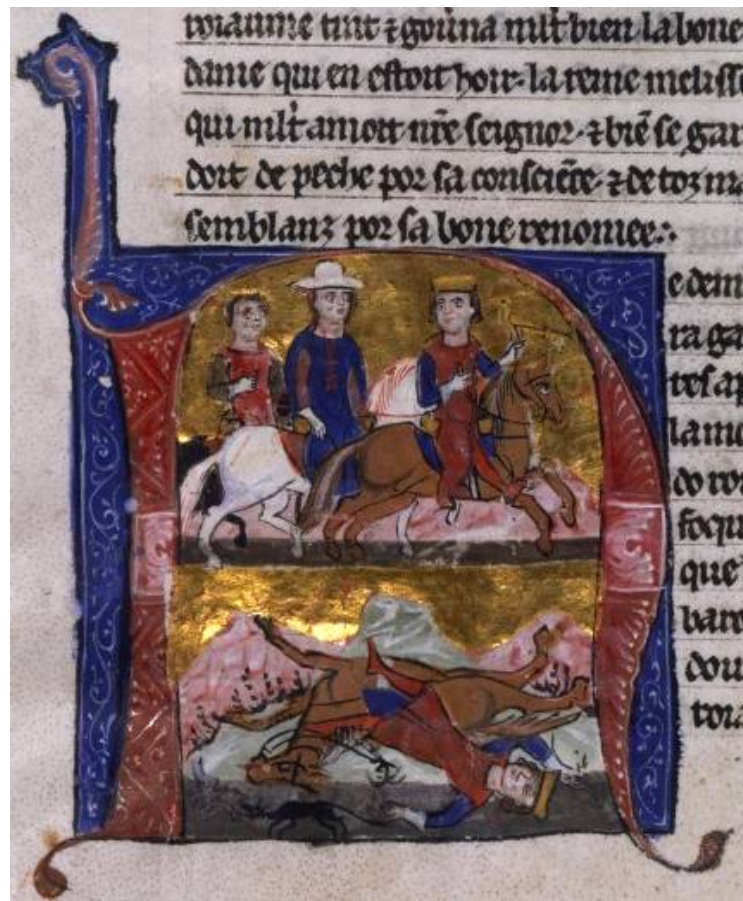 roiaume tint ⁊ goũna ml̃t bien la bone
dame qui en estoit hoir. la reine meliss
qui ml̃t amoit nr̃e seignor. ⁊ biẽ se gar
doit de peche por sa consciẽce. ⁊ de toz ma
semblanz por sa bone renomee.
e dem
ra ga
tes ap
la mo
do roi
foqu
que
baro
dou
roia